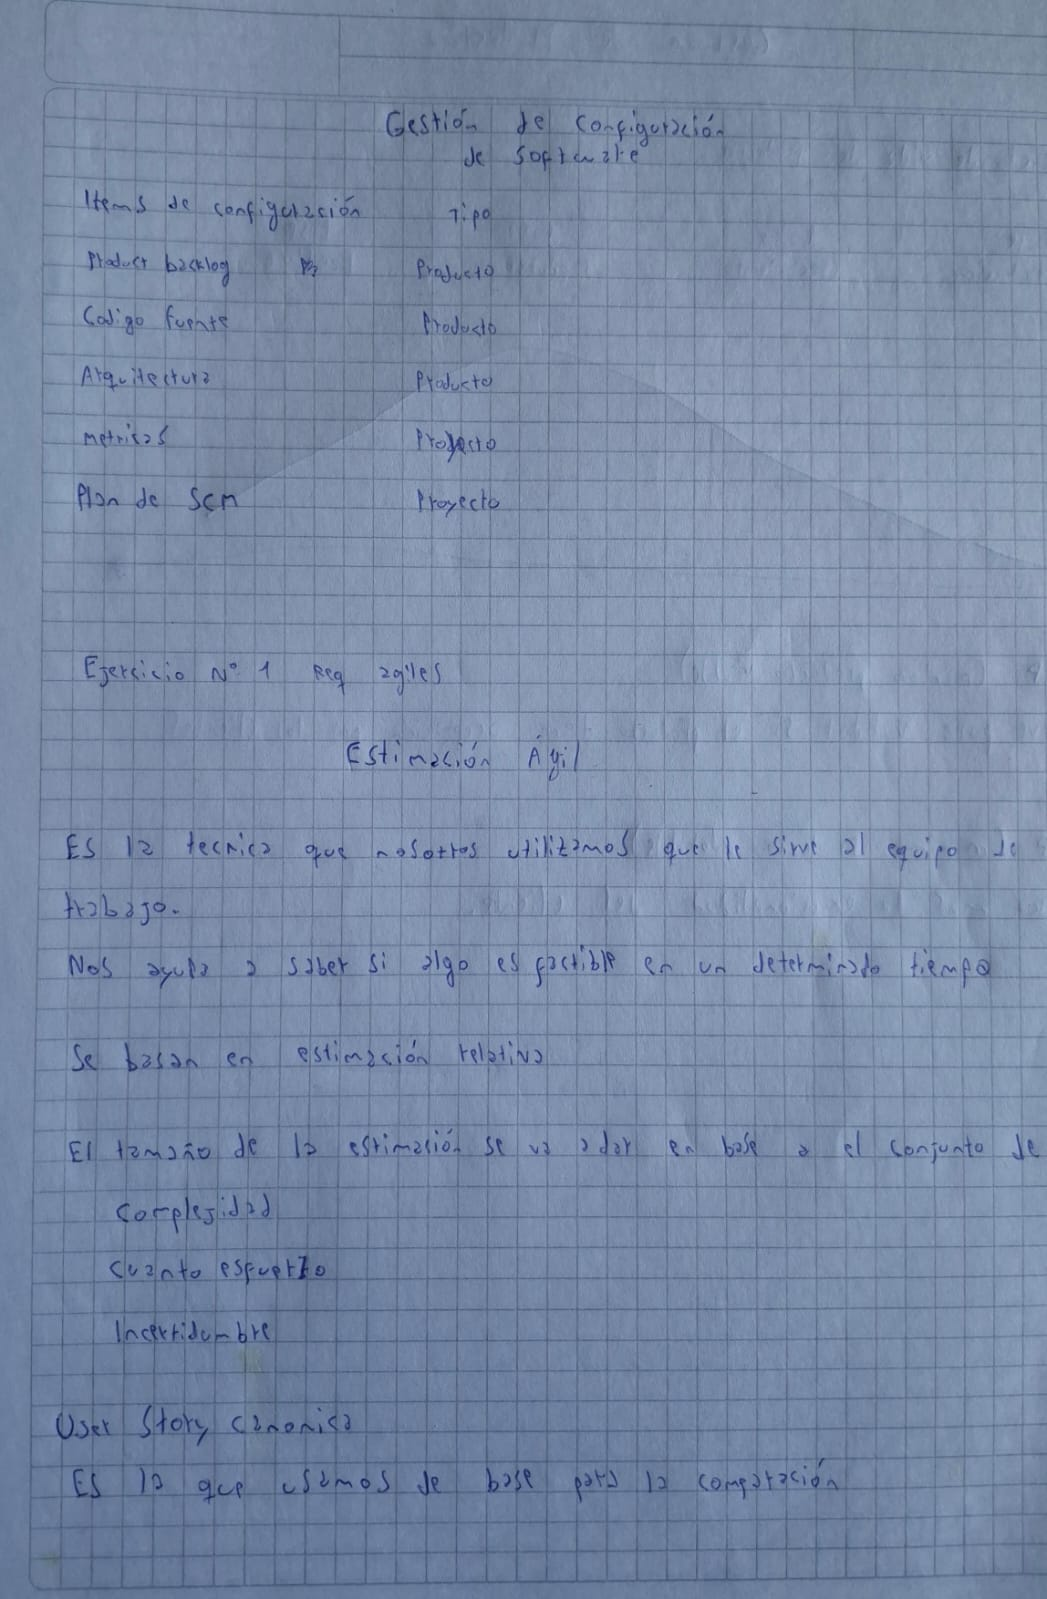 Gestión de configuración
de software
Items de configuración Tipo
Product backlog Producto
Codigo fuente Producto
Arquitectura Producto
metricas Proyecto
Plan de SCM Proyecto
Ejercicio N° 1 Req agiles
Estimación Ágil
Es la tecnica que nosotros utilizamos que le sirve al equipo de
trabajo.
Nos ayuda a saber si algo es factible en un determinado tiempo
Se basan en estimación relativa
El tamaño de la estimación se va a dar en base a el conjunto de
complejidad
cuanto esfuerzo
Incertidumbre
User Story canonica
Es la que usamos de base para la comparación